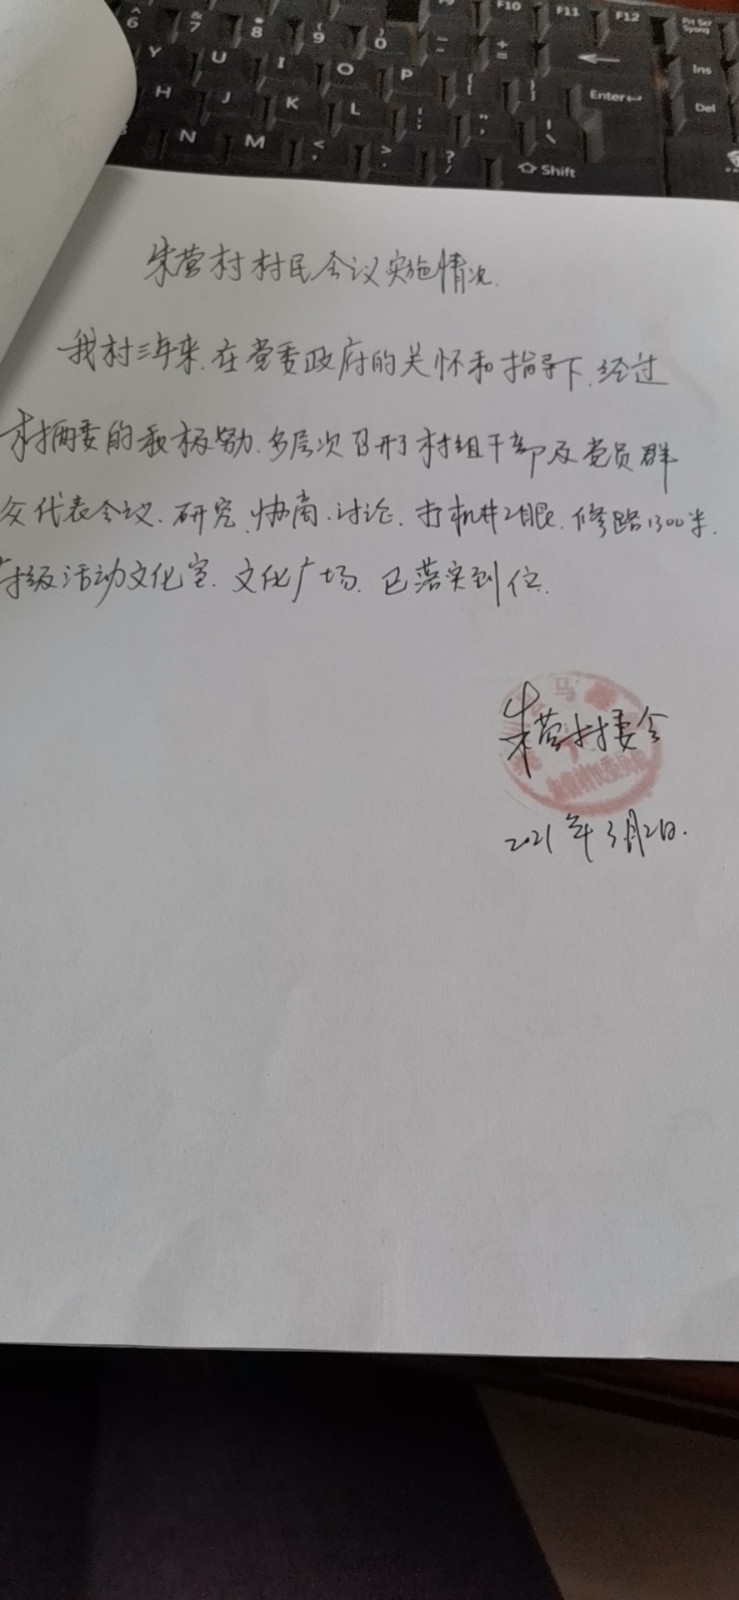 6
7
8
9
0
F10
F11
F12
Prt Scr
Y
U
I
O
P
Ins
H
J
K
L
Enter
Del
N
M
Shift
朱营村村民会议实施情况.
我村三年来.在党委政府的关怀和指导下.经过
村两委的积极努力.多层次召开了村组干部及党员群
众代表会议.研究.协商.讨论.打机井2眼.修路1300米.
村级活动文化室.文化广场.已落实到位.
朱营村村委会
2021年3月2日.